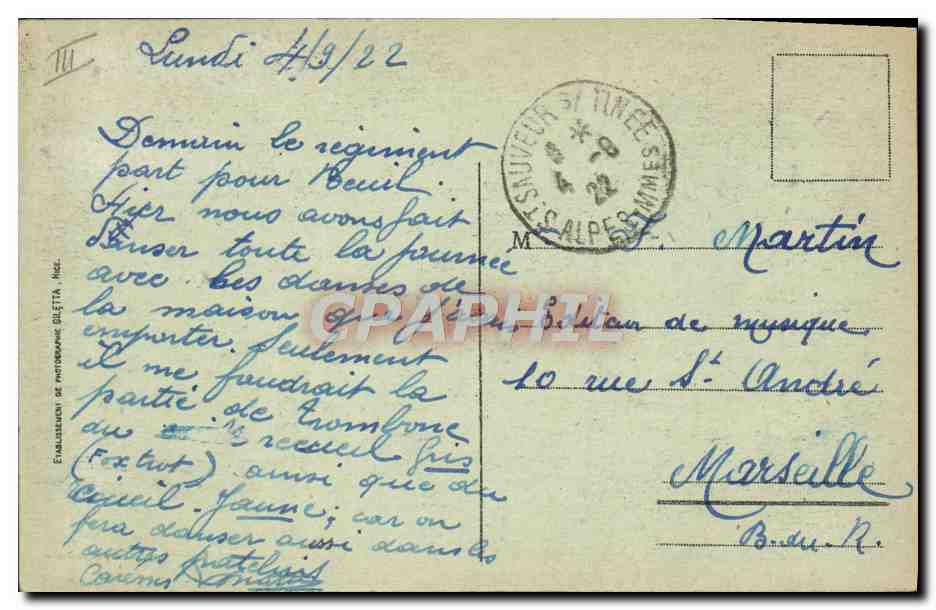 III
Lundi 4/9/22
Demain le régiment
part pour Beuil.
Hier nous avons fait
danser toute la journée
avec les danses de
la maison que j'ai
emporter. Seulement
il me faudrait la
partie de trombone
du recueil gris
(Fox trot) ainsi que du
cueil Jaune; car on
fera danser aussi dans les
autres
ETABLISSEMENT DE PHOTOGRAPHIE GILETTA, NICE.
CPAPHIL
ST SAUVEUR S/ TINEE
* 4 -9 22
ALPES MMES
M J. Martin
Editeur de musique
10 rue St André
Marseille
B.-du-R.